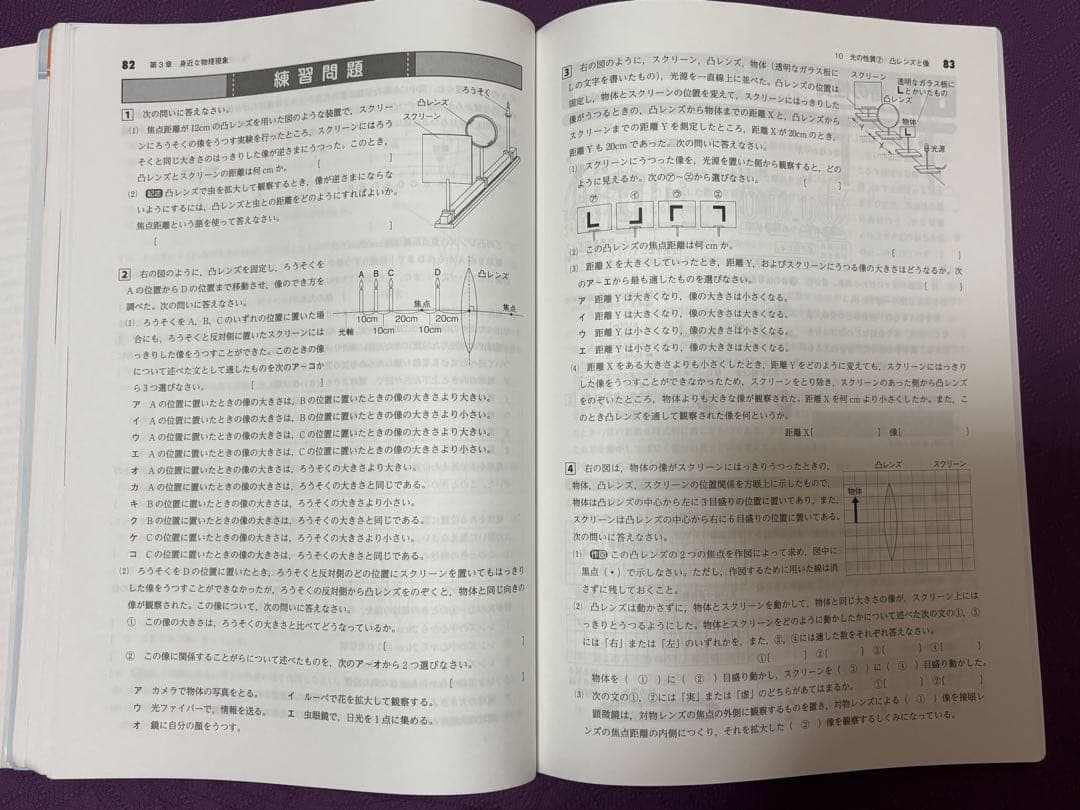 82 第3章 身近な物理現象
練習問題
1 次の問いに答えなさい。
(1) 焦点距離が12cmの凸レンズを用いた図のような装置で，スクリー
ンにろうそくの像をうつす実験を行ったところ，スクリーンにはろう
そくと同じ大きさのはっきりした像が逆さまにうつった。このとき，
凸レンズとスクリーンの距離は何cmか。 [ ]
(2) 記述 凸レンズで虫を拡大して観察するとき，像が逆さまにならな
いようにするには，凸レンズと虫との距離をどのようにすればよいか。
焦点距離という語を使って答えなさい。
[ ]
ろうそく
凸レンズ
スクリーン
2 右の図のように，凸レンズを固定し，ろうそくを
Aの位置からDの位置まで移動させ，像のでき方を
調べた。次の問いに答えなさい。
(1) ろうそくをA，B，Cのいずれの位置に置いた場
合にも，ろうそくと反対側に置いたスクリーンには
っきりした像をうつすことができた。このときの像
について述べた文として適したものを次のア〜コか
ら3つ選びなさい。 [ ]
A B C D 凸レンズ
焦点 焦点
10cm 20cm 20cm
光軸 10cm 10cm
ア Aの位置に置いたときの像の大きさは，Bの位置に置いたときの像の大きさより大きい。
イ Aの位置に置いたときの像の大きさは，Bの位置に置いたときの像の大きさより小さい。
ウ Aの位置に置いたときの像の大きさは，Cの位置に置いたときの像の大きさより大きい。
エ Aの位置に置いたときの像の大きさは，Cの位置に置いたときの像の大きさより小さい。
オ Aの位置に置いたときの像の大きさは，ろうそくの大きさより大きい。
カ Aの位置に置いたときの像の大きさは，ろうそくの大きさと同じである。
キ Bの位置に置いたときの像の大きさは，ろうそくの大きさより小さい。
ク Bの位置に置いたときの像の大きさは，ろうそくの大きさと同じである。
ケ Cの位置に置いたときの像の大きさは，ろうそくの大きさより小さい。
コ Cの位置に置いたときの像の大きさは，ろうそくの大きさと同じである。
(2) ろうそくをDの位置に置いたとき，ろうそくと反対側のどの位置にスクリーンを置いてもはっきり
した像をうつすことができなかったが，ろうそくの反対側から凸レンズをのぞくと，物体と同じ向きの
像が観察された。この像について，次の問いに答えなさい。
① この像の大きさは，ろうそくの大きさと比べてどうなっているか。
[ ]
② この像に関係することがらについて述べたものを，次のア〜オから2つ選びなさい。
[ ]
ア カメラで物体の写真をとる。 イ ルーペで花を拡大して観察する。
ウ 光ファイバーで，情報を送る。 エ 虫眼鏡で，日光を1点に集める。
オ 鏡に自分の顔をうつす。
10 光の性質② 凸レンズと像 83
3 右の図のように，スクリーン，凸レンズ，物体（透明なガラス板に
Lの文字を書いたもの），光源を一直線上に並べた。凸レンズの位置は
固定し，物体とスクリーンの位置を変えて，スクリーンにはっきりした
像がうつるときの，凸レンズから物体までの距離Xと，凸レンズから
スクリーンまでの距離Yを測定したところ，距離Xが20cmのとき，
距離Yも20cmであった。次の問いに答えなさい。
(1) スクリーンにうつった像を，光源を置いた側から観察すると，どの
ように見えるか。次の㋐〜㋓から選びなさい。 [ ]
スクリーン 透明なガラス板に
Lとかいたもの
凸レンズ
物体
L
光源
Y
X
㋐ ㋑ ㋒ ㋓
(2) この凸レンズの焦点距離は何cmか。 [ ]
(3) 距離Xを大きくしていったとき，距離Y，およびスクリーンにうつる像の大きさはどうなるか。次
のア〜エから最も適したものを選びなさい。 [ ]
ア 距離Yは大きくなり，像の大きさは小さくなる。
イ 距離Yは大きくなり，像の大きさは大きくなる。
ウ 距離Yは小さくなり，像の大きさは小さくなる。
エ 距離Yは小さくなり，像の大きさは大きくなる。
(4) 距離Xをある大きさよりも小さくしたとき，距離Yをどのように変えても，スクリーンにはっきり
した像をうつすことができなかったため，スクリーンをとり除き，スクリーンのあった側から凸レンズ
をのぞいたところ，物体よりも大きな像が観察された。距離Xを何cmより小さくしたか。また，こ
のとき凸レンズを通して観察された像を何というか。
距離X[ ] 像[ ]
4 右の図は，物体の像がスクリーンにはっきりうつったときの，
物体，凸レンズ，スクリーンの位置関係を方眼上に示したもので，
物体は凸レンズの中心から左に3目盛りの位置に置いてあり，また，
スクリーンは凸レンズの中心から右に6目盛りの位置に置いてある。
次の問いに答えなさい。
(1) 作図 この凸レンズの2つの焦点を作図によって求め，図中に
黒点（•）で示しなさい。ただし，作図するために用いた線は消
さずに残しておくこと。
凸レンズ スクリーン
物体
(2) 凸レンズは動かさずに，物体とスクリーンを動かして，物体と同じ大きさの像が，スクリーン上には
っきりとうつるようにした。物体とスクリーンをどのように動かしたかについて述べた次の文の①，③
には「右」または「左」のいずれかを，また，②，④には適した数をそれぞれ答えなさい。
①[ ] ②[ ] ③[ ] ④[ ]
物体を（ ① ）に（ ② ）目盛り動かし，スクリーンを（ ③ ）に（ ④ ）目盛り動かした。
(3) 次の文の①，②には「実」または「虚」のどちらがあてはまるか。 ①[ ] ②[ ]
顕微鏡は，対物レンズの焦点の外側に観察するものを置き，対物レンズによる（ ① ）像を接眼レ
ンズの焦点距離の内側につくり，それを拡大した（ ② ）像を観察するしくみになっている。